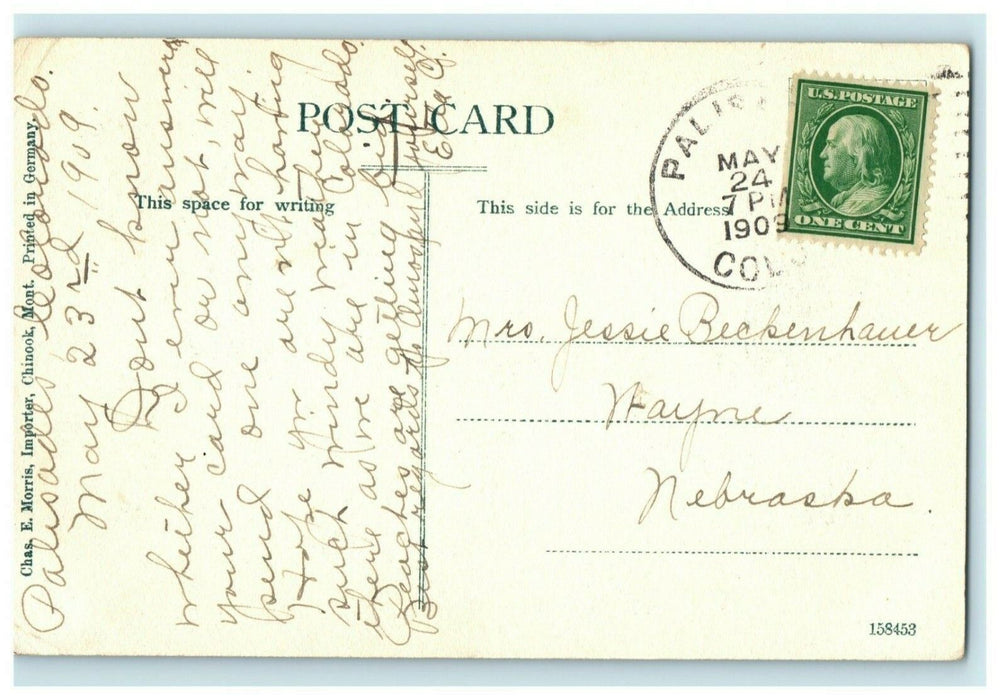 POST CARD
This space for writing
This side is for the Address
Chas. E. Morris, Importer, Chinook, Mont. Printed in Germany.
PALIS
MAY
24
7 PM
1909
COLO
U.S. POSTAGE
ONE CENT
Palisade Colorado.
May 23rd 1909.
Dont know
whether I ever answered
your card or not, will
send one anyway.
Hope you are not having
such windy weather
there as we are in Colorado.
Peaches are getting big.
Best regards to and yourself
Mrs. Jessie Beckenhauer
Wayne
Nebraska.
158453